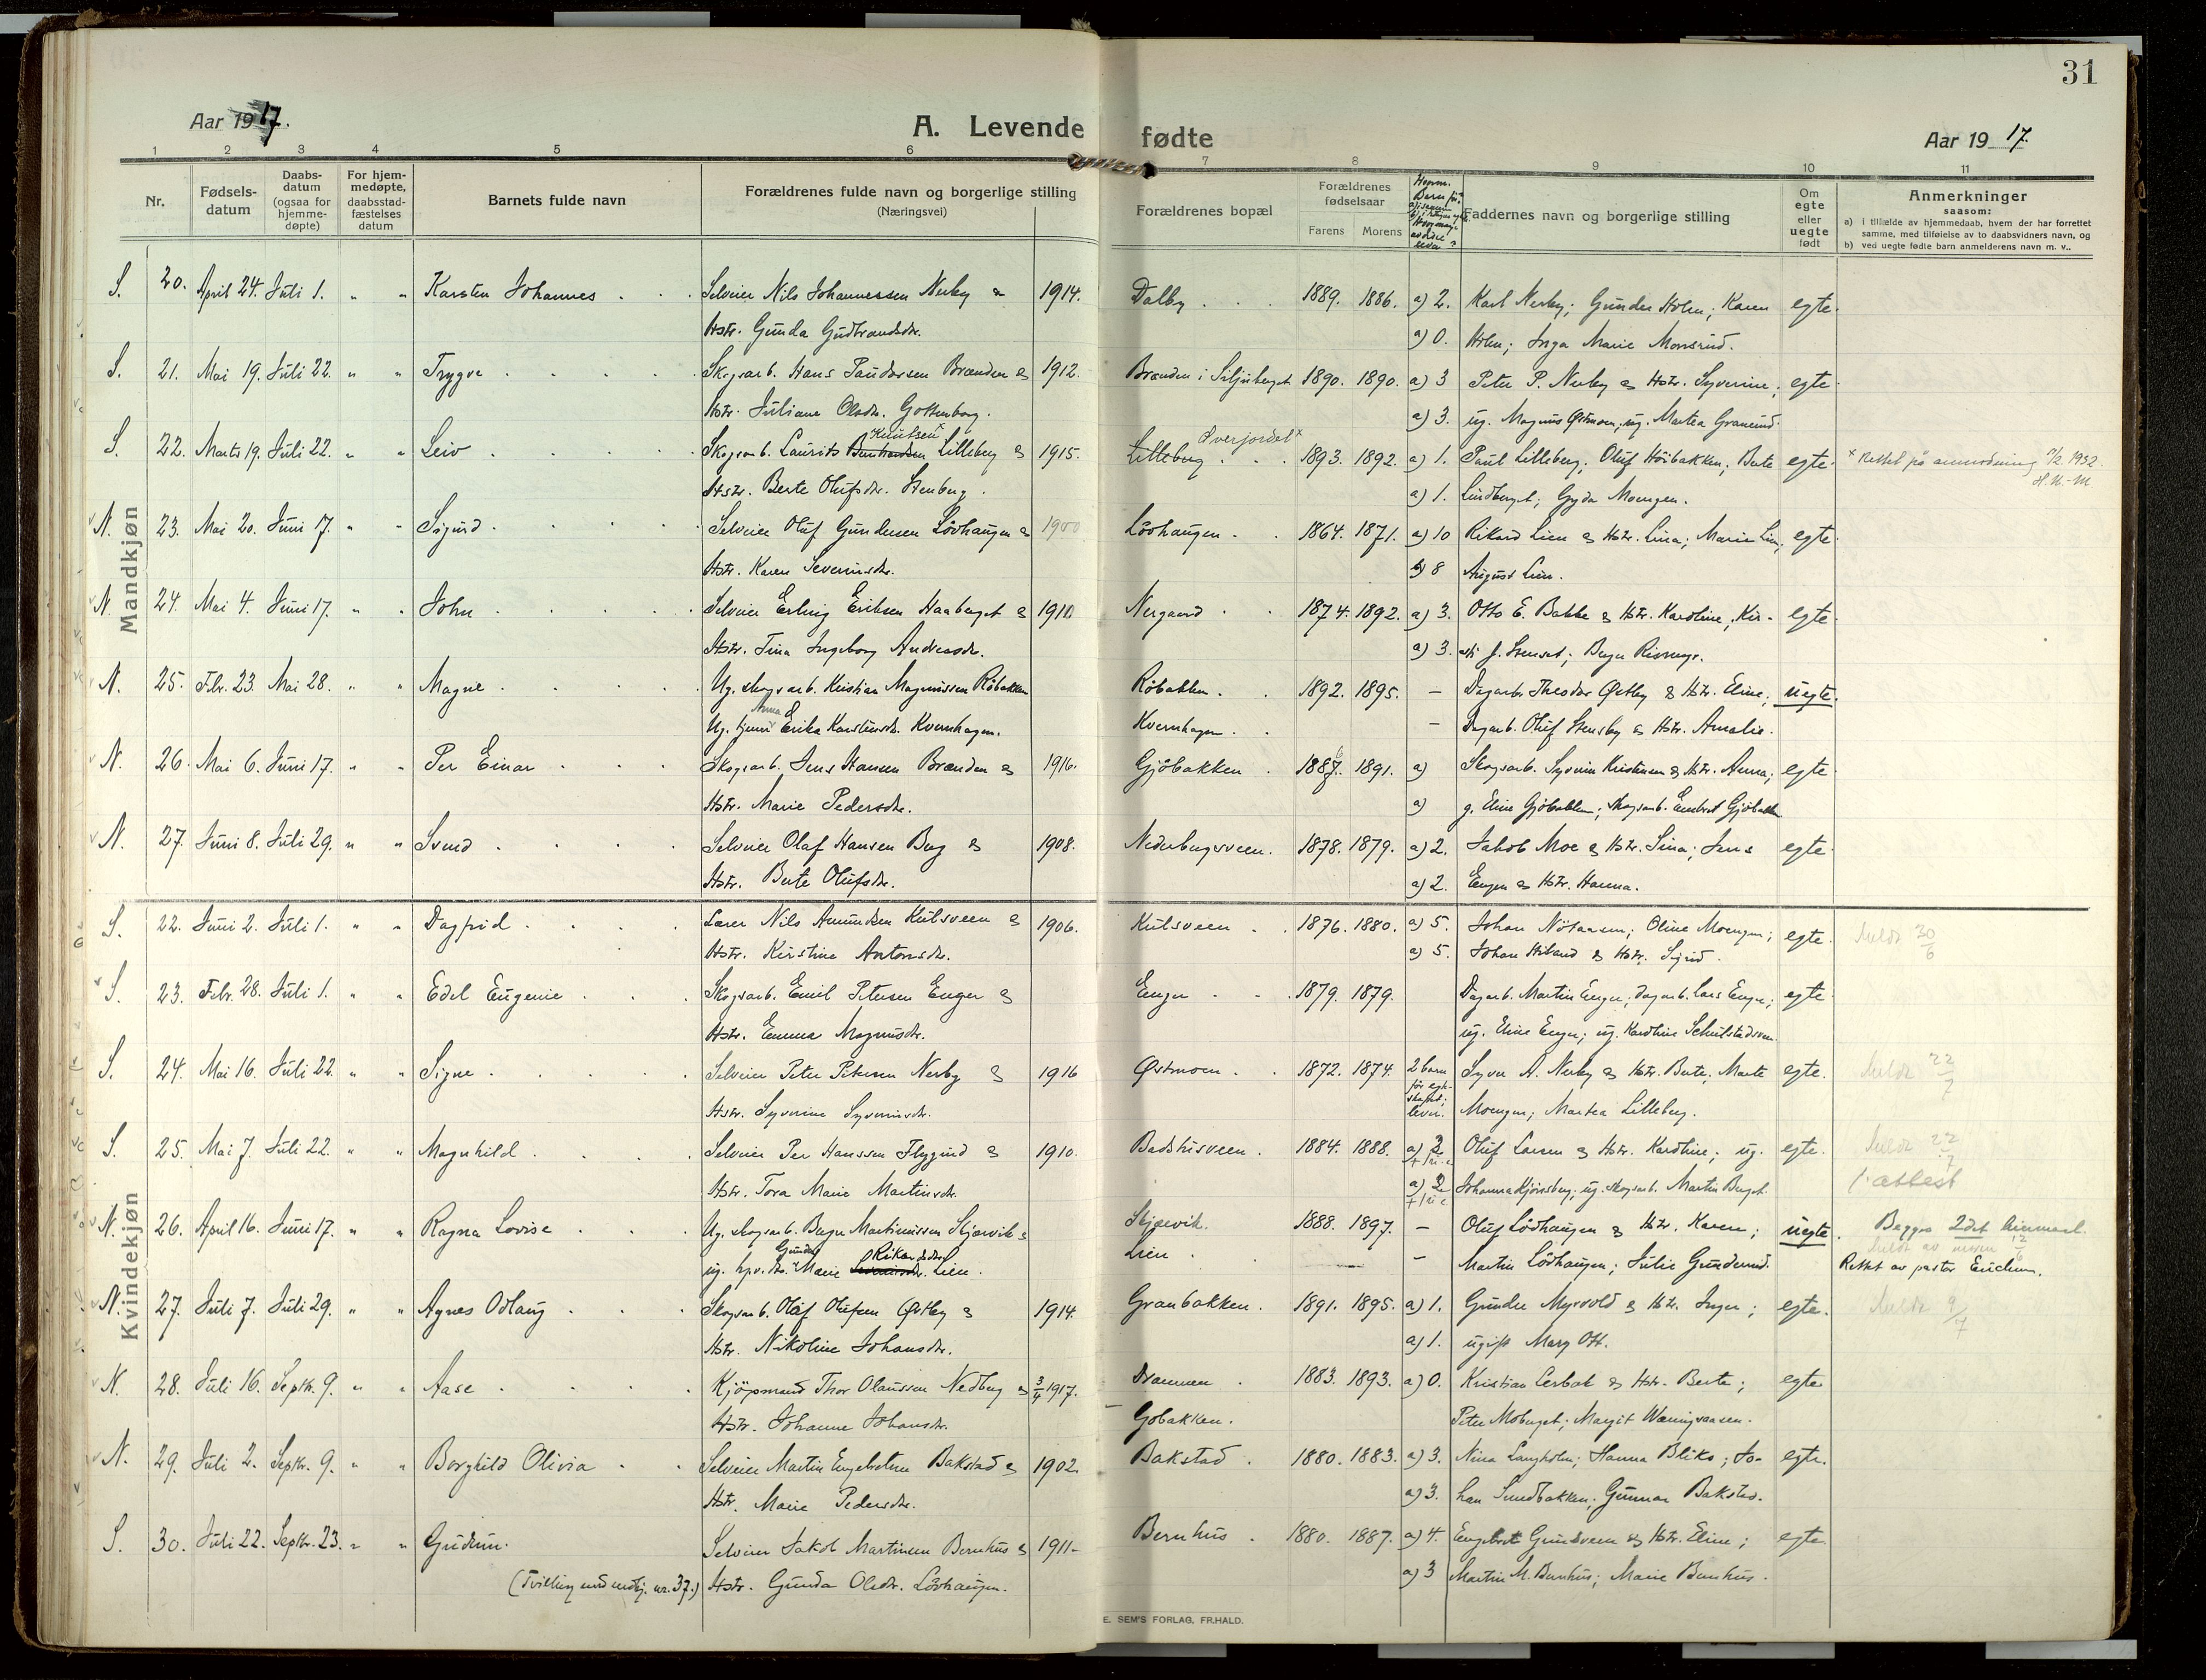 31
Aar 1917.
A. Levende fødte
Aar 1917.
1 2 3 4 5 6 7 8 9 10 11
Nr.
Fødsels-
datum
Daabs-
datum
(ogsaa for
hjemme-
døpte)
For hjem-
medøpte,
daabsstad-
fæstelses
datum
Barnets fulde navn
Forældrenes fulde navn og borgerlige stilling
(Næringsvei)
Forældrenes bopæl
Forældrenes
fødselsaar
Farens Morens
Faddernes navn og borgerlige stilling
Om
egte
eller
uegte
født
Anmerkninger
saasom:
a) i tilfælde av hjemmedaab, hvem der har forrettet
samme, med tilføielse av to daabsvidners navn, og
b) ved uegte fødte barn anmelderens navn m. v..
Mandkjøn
S. 20. April 24. Juli 1. " " Karsten Johannes Selveier Nils Johannessen Nerby & 1914. Dalby 1889. 1886. a) 2. Karl Nerby; Gunder Holen; Karen egte.
Hstr. Gunda Gudbrandsdtr. a) 0. Holen; Inga Marie Monsrud.
S. 21. Mai 19. Juli 22. " " Trygve Skogsarb. Hans Paudersen Brænden & 1912. Brænden i Siljuberget 1890. 1890. a) 3 Peter P. Nerby & Hstr. Syverine; egte.
Hstr. Juliane Olsdtr. Gottenborg. a) 3. ug. Magnus Østmoen; ug. Martea Granerud.
Knutsen x Overjordet x
S. 22. Marts 19. Juli 22. " " Leiv Skogsarb. Laurits Lilleberg & 1915. Lilleberg 1893. 1892. a) 1. Paul Lilleberg; Oluf Höibakken; Berte egte. x Rettet på anmodning 7/2 1952.
Hstr. Berte Olufsdtr. Stenberg. a) 1. Lindberget; Gyda Moengen. H.U-M
N. 23. Mai 20. Juni 17. " " Sigurd Selveier Oluf Gundersen Lövhaugen & 1900 Lövhaugen 1864. 1871. a) 10 Rikard Lien & Hstr. Lina; Marie Lien; egte.
Hstr. Karen Severinsdtr. b) 8 August Lien.
N. 24. Mai 4. Juni 17. " " John Selveier Erling Eriksen Haaberget & 1910 Nergaard 1874. 1892. a) 3. Otto E. Bakke & Hstr. Karoline; Kir- egte.
Hstr. Tina Ingeborg Andersdtr. a) 3.
N. 25. Febr. 23. Mai 28. " " Magne Ug. skogsarb. Kristian Magnussen Röbakken Röbakken 1892. 1895. – Dagarb. Theodor Østby & Hstr. Eline; uegte.
Anna
Ug. tjener Erika Karstensdtr. Kvernhagen. Kvernhagen – Dagarb. Oluf Stensby & Hstr. Amalie.
N. 26. Mai 6. Juni 17. " " Per Einar Skogsarb. Jens Hansen Brænden & 1916. Gjöbakken 1887. 1891. a) Skogsarb. Syverin Kristensen & Hstr. Anna; egte.
Hstr. Marie Pedersdtr. a) g. Eline Gjöbakken; skogsarb. Gjöbakken
N. 27. Juni 8. Juli 29. " " Svend Selveier Olaf Hansen Berg & 1908. Nederbergsveen. 1878. 1879. a) 2. Jakob Moe & Hstr. Lina; Jens egte.
Hstr. Berte Olufsdtr. a) 2. Engen & Hstr. Hanna.
Kvindekjøn
S. 22. Juni 2. Juli 1. " " Dagfrid Lærer Nils Amundsen Kulsveen & 1906. Kulsveen 1876. 1880. a) 5. Johan Nötaasen; Oline Moengen; egte. Meldt 30/6
Hstr. Kirstine Antonsdtr. a) 5. Johan & Hstr. Sigrid.
S. 23. Febr. 28. Juli 1. " " Edel Eugenie Skogsarb. Emil Petersen Enger & Enger 1879. 1879. Dagarb. Martin Enger; dagarb. Lars Enger; egte.
Hstr. Emma Magnusdtr. ug. Eline Enger; ug. Karoline Schulstadsveen.
S. 24. Mai 16. Juli 22. " " Signe Selveier Peter Petersen Nerby & 1916 Østmoen 1872. 1874. 2 barn før egteskapet; lever. Syver A. Nerby & Hstr. Berte; Marte egte. Meldt 22/7
Hstr. Syverine Syverinsdtr. Moengen; Martea Lilleberg.
S. 25. Mai 7. Juli 22. " " Magnhild Selveier Per Hanssen Flygind & 1910. Badstusveen 1884. 1888. a) 2 Oluf Larsen & Hstr. Karoline; ug. egte. Meldt 22/7
Hstr. Tora Marie Martinsdtr. a) 2 Johanna Kjönsberg; ug. skogsarb. Martin Berget. attest
N. 26. April 16. Juni 17. " " Ragna Lovise Ug. skogsarb. Birger Martinussen Skjærvik & Skjærvik. 1888. 1897. – Oluf Lövhaugen & Hstr. Karen; uegte. Begges 2det
Gunda Rikardsdtr. Meldt av moren 12/6
ug. Marie Lien. Lien – Martin Lövhaugen; Julie Gunderud. Rettet av pastor
N. 27. Juli 7. Juli 29. " " Agnes Odlaug Skogsarb. Olaf Olufsen Østby & 1914. Granbakken. 1891. 1895. a) 1. Gunder Myrvold & Hstr. Inger; egte. Meldt 9/7
Hstr. Nikoline Johansdtr. a) 1. ugift Mary Ott.
N. 28. Juli 16. Septbr. 9. " " Aase Kjöpmand Thor Olaussen Nedberg & 3/4 1917. Drammen 1883. 1893. a) 0. Kristian Lerbak & Hstr. Berte; egte
Hstr. Johanne Johansdtr. Gobakken. Peter Moberget; Margit Wæringsaasen.
N. 29. Juli 2. Septbr. 9. " " Borghild Olivia Selveier Martin Engebretsen Bakstad & 1902. Bakstad 1880. 1883. a) 3. Nina Langholm; Hanna Bliko; Jo- egte.
Hstr. Marie Pedersdtr. a) 3. han Sundbakken; Gunnar Bakstad.
S. 30. Juli 22. Septbr. 23. " " Gudrun. Selveier Jakob Martinsen Bernhus & 1911- Bernhus 1880. 1887. a) 4. Engebret Grundsveen & Hstr. Eline; egte.
(Tvilling med mdkj. nr. 37.) Hstr. Gunda Olsdtr. Lövhaugen. a) 3 Martin M. Bernhus; Marie Bernhus.
E. SEM'S FORLAG, FR.HALD.